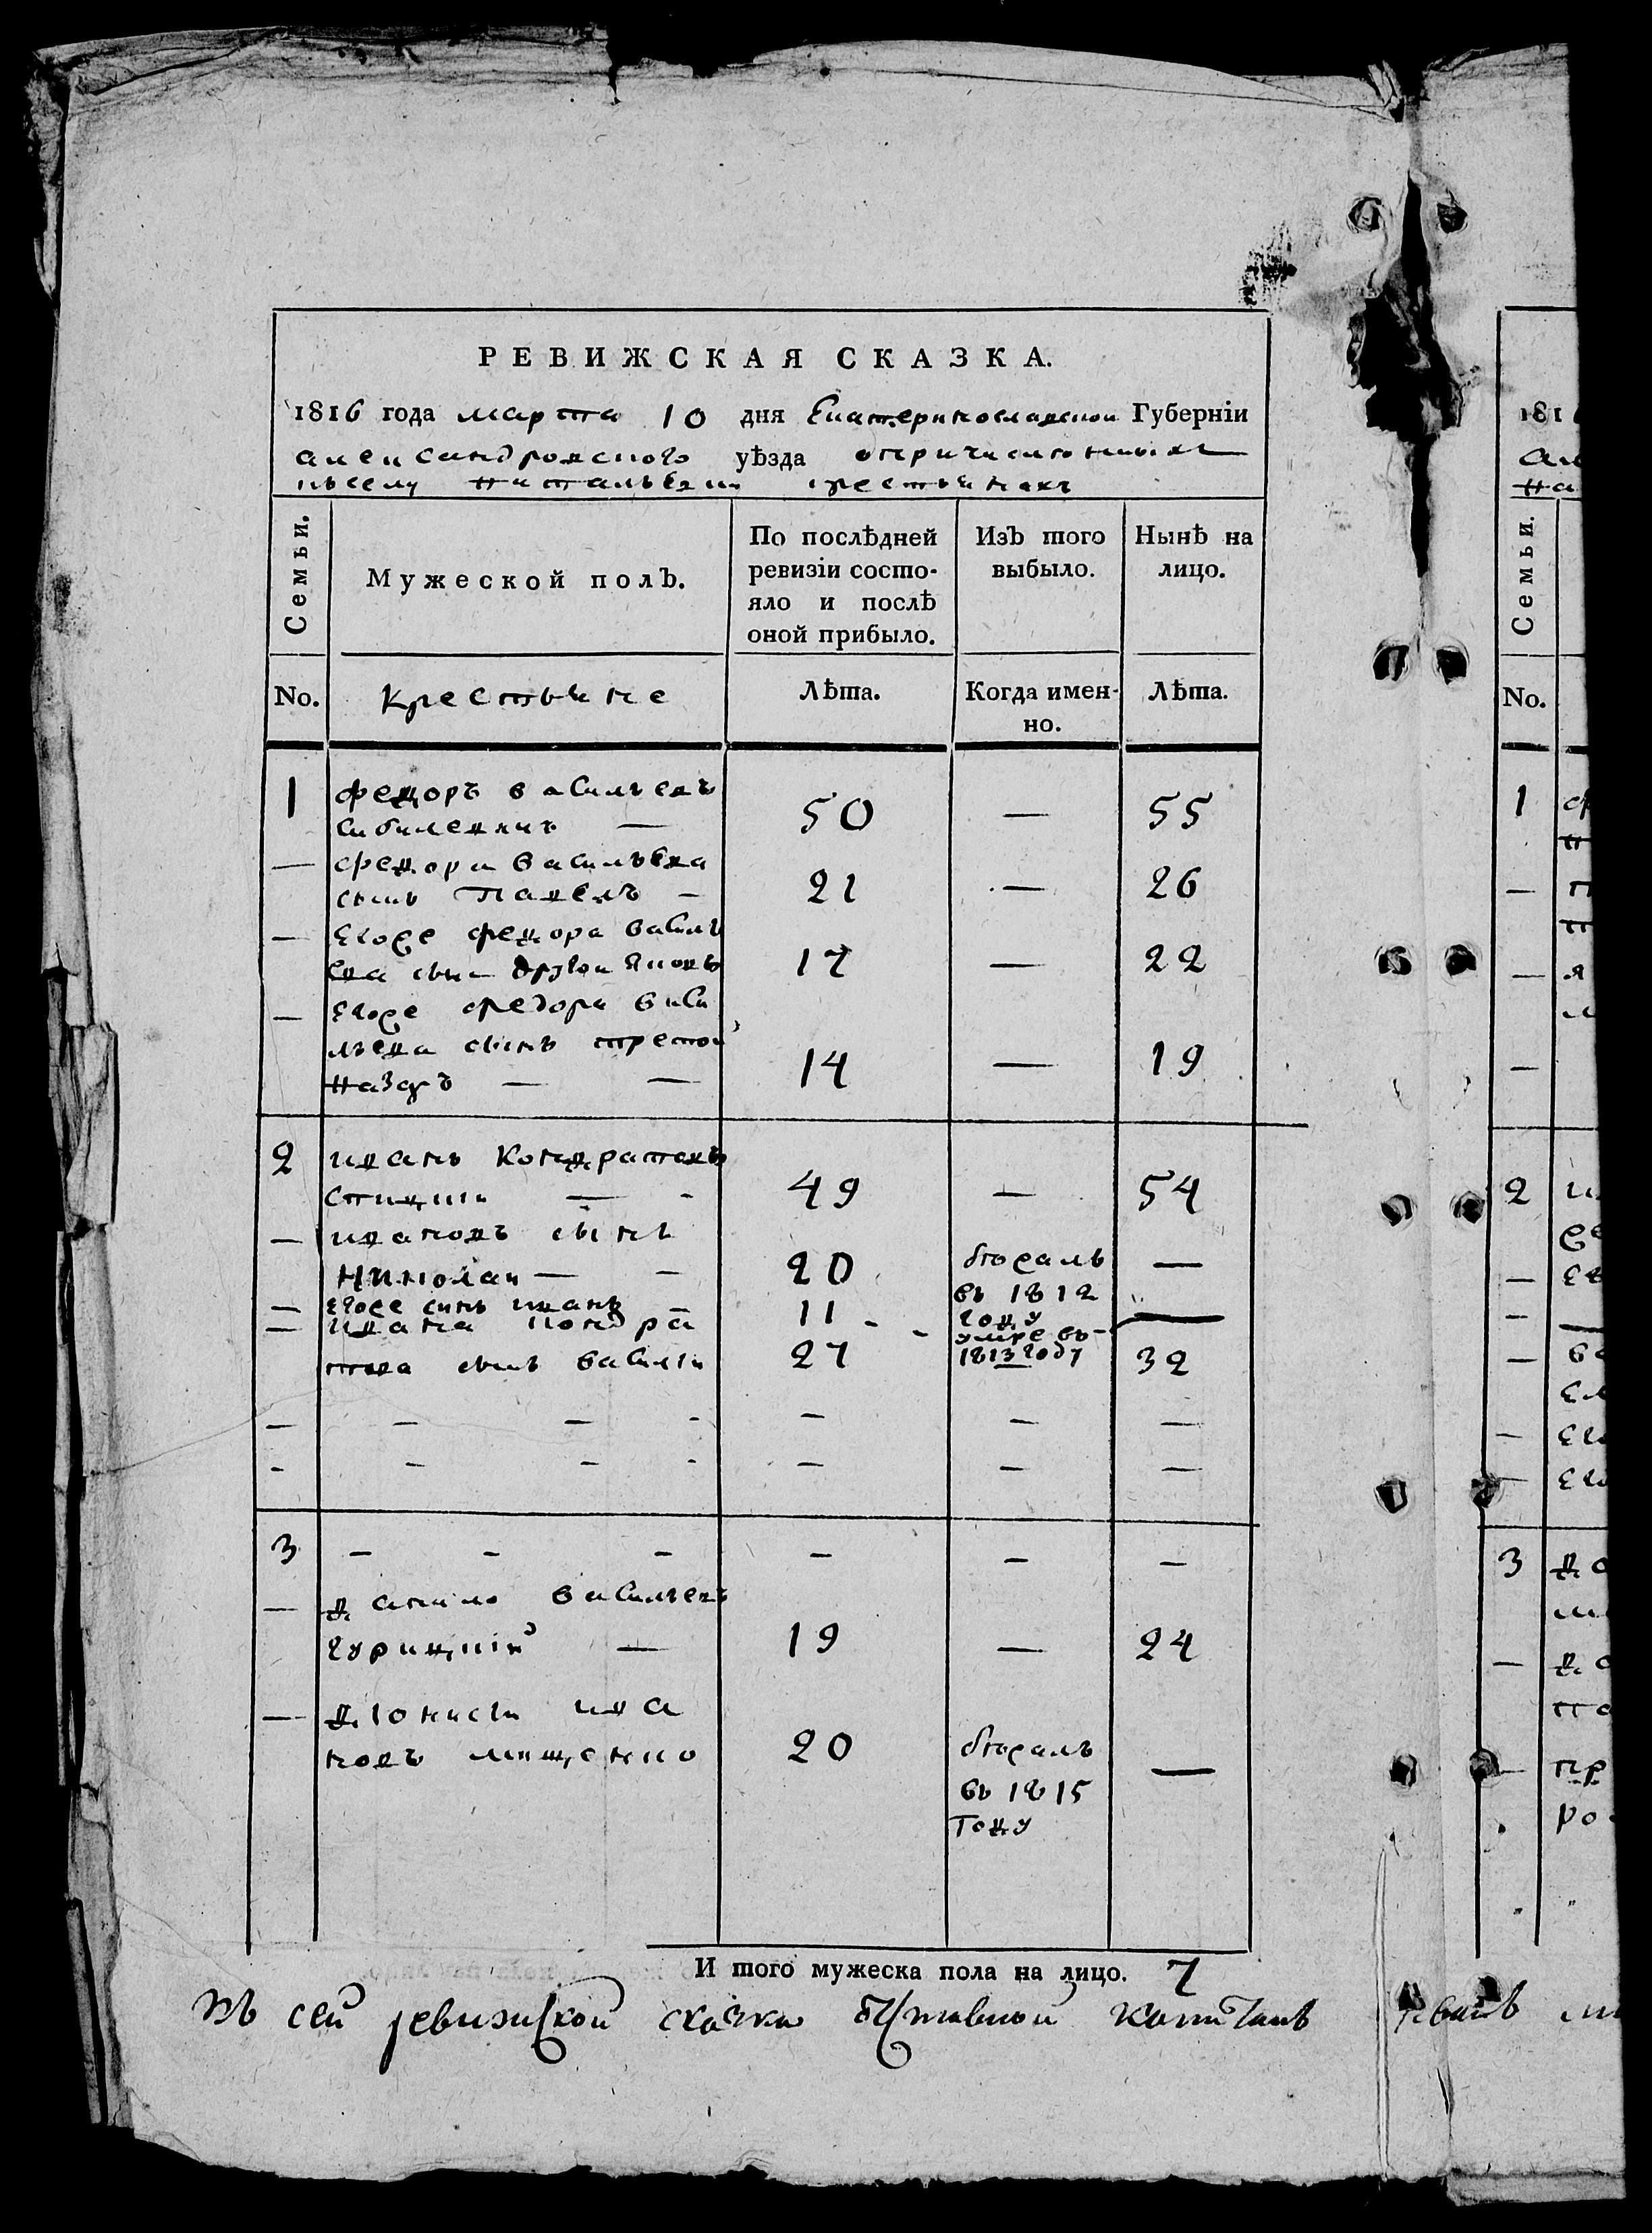 РЕВИЖСКАЯ СКАЗКА.
1816 года марта 10 дня Екатеринославской Губерніи
александровского уѣзда опричисленныхъ
ксему Натальевки крестьянахъ
Семьи.
Мужеской полъ.
По послѣдней ревизіи состо-
яло и послѣ
оной прибыло.
Изъ того
выбыло.
Нынѣ на
лицо.
No.
Крестьяне
Лѣта.
Когда имен-
но.
Лѣта.
1 федоръ васильевъ
50 — 55
— федора васильева
сынъ Павелъ — 21 — 26
— Егоже федора василь
ева сынъ другой Яковъ 17 — 22
— Егоже федора васи
льева сынъ третой
Назаръ — — 14 — 19
2 иванъ Кондратовъ
— - 49 — 54
— ивановъ сынъ
Николаи — - 20 бежалъ —
въ 1812
году
— Егоже синъ иванъ - 11 - - умре въ —
1813 году
— ивана кондра
това сынъ василій 27 — 32
— — — - — — —
- - - - — — —
3 — - — — — —
— данило васильевъ
гурицкій — 19 — 24
— діонисій ива
новъ мищенко 20 бежалъ —
въ 1815
Году
И того мужеска пола на лицо. 7
Къ сей ревизской сказки отставной капитанъ
1816
Семьи.
No.
1
—
—
—
2
—
—
—
—
—
3
—
—